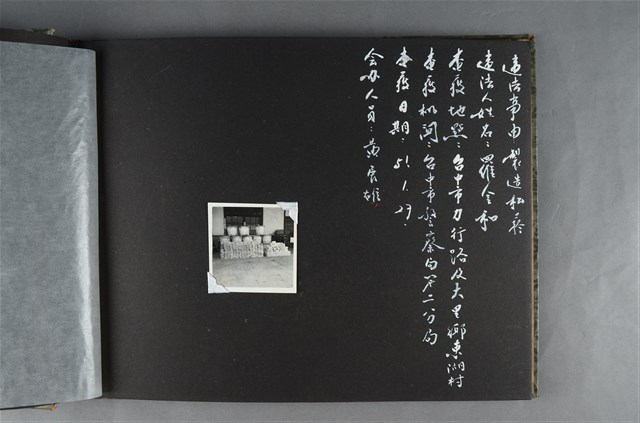 違法事由：製造私菸
違法人姓名：羅金和
查獲地點：台中市力行路及大里鄉東湖村
查獲机関：台中市警察局第二分局
查獲日期：51.1.29.
会办人員：黃辰雄